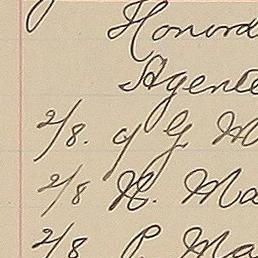 Honord
Agente
2/8. G M
2/8 H. Ma
2/8 P. Ma